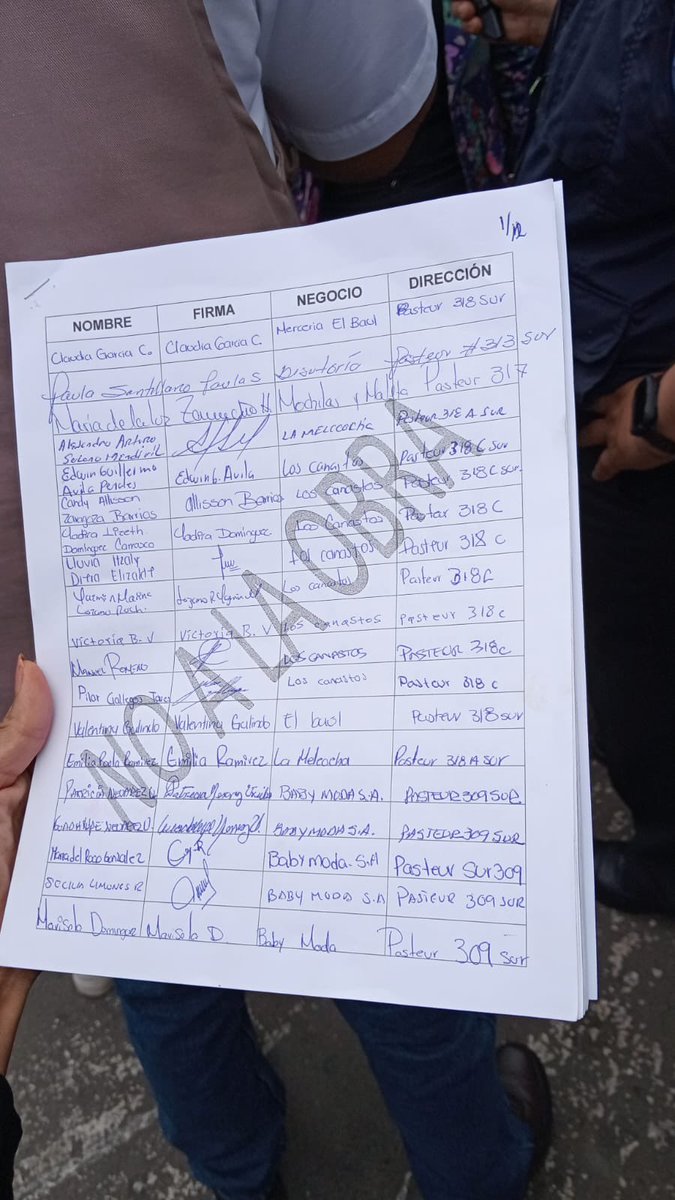 1/12
NOMBRE FIRMA NEGOCIO DIRECCIÓN
Claudia Garcia C. Claudia Garcia C. Merceria El Baul Pasteur 318 Sur
Paula Santillano Paula S Pasteur #313 Sur
Maria de la luz Mochilas y Pasteur 317
Alejandro Arturo LA MELCOCHA Pasteur 318 A SUR
Edwin Guillermo Avila Edwin G. Avila Los canastos Pasteur 318 C Sur
Candy Allisson Zaragoza Barrios Allisson Barrios Los canastos Pasteur 318 C Sur
Lizeth Dominguez Carrasco Dominguez Los Canastos Pastar 318 C
Lluvia Itzaly Los canastos Pasteur 318 C
Los canastos Pasteur 318 C
Victoria B. V Victoria B. V Los canastos Pasteur 318 C
Manuel Romero LOS CANASTOS PASTEUR 318 C
Pilar Gallegos Los canastos Pasteur 318 C
Valentina Galindo Valentina Galindo El baul Pasteur 318 sur
Emilia Paola Ramirez Emilia Ramirez La Melcocha Pasteur 318 A sur
BABY MODA S.A. PASTEUR 309 SUR
BABY MODA S.A. PASTEUR 309 SUR
Maria del Rocio Gonzalez Baby moda. S.A Pasteur Sur 309
SECILIA LIMONES R BABY MODA S.A PASTEUR 309 SUR
Marisola Dominguez Marisola D. Baby Moda Pasteur 309 sur
NO A LA OBRA